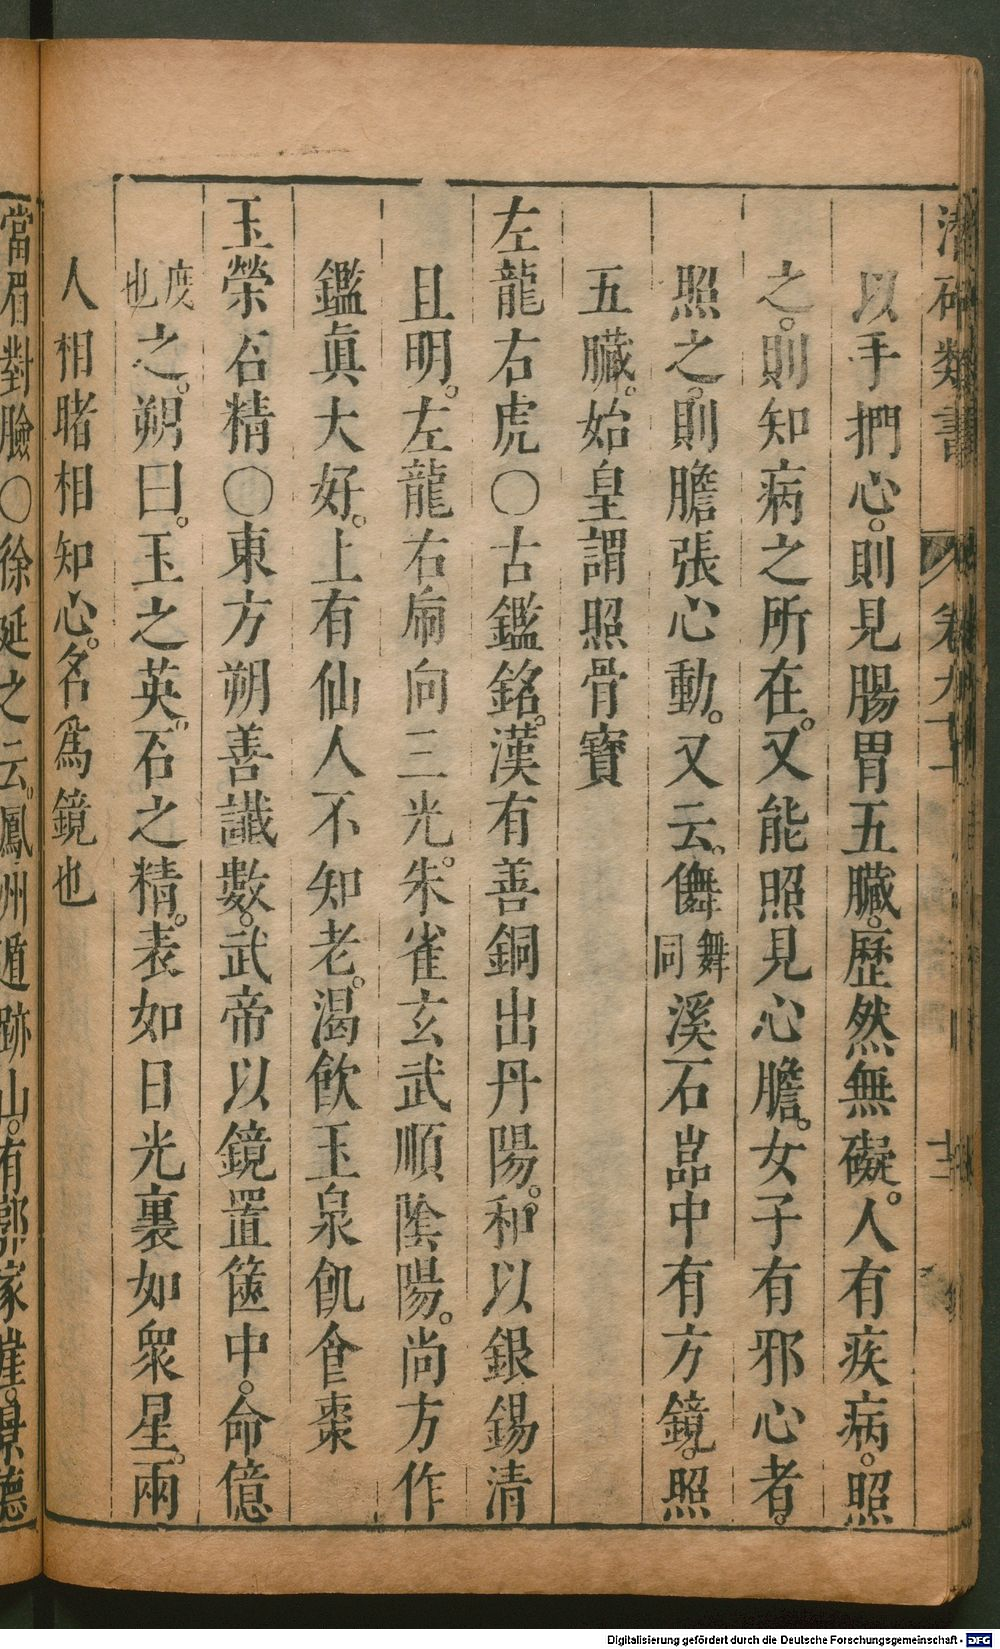 類書 卷九
以手捫心。則見腸胃五臟。歷然無礙。人有疾病。照
之。則知病之所在。又能照見心膽。女子有邪心者。
照之。則膽張心動。又云。儛舞同溪石嵓中有方鏡。照
五臟。始皇謂照骨寶
左龍右虎〇古鑑銘。漢有善銅出丹陽。和以銀錫清
且明。左龍右䖝向三光。朱雀玄武順陰陽。尚方作
鑑眞大好。上有仙人不知老。渴飲玉泉飢食棗
玉榮石精〇東方朔善讖數。武帝以鏡置篋中。命億
度也之。朔曰。玉之英。石之精。表如日光裏如衆星。兩
人相睹相知心。名爲鏡也
當眉對臉〇徐延之云。鳳州遁跡山。有郭家崖。景德
Digitalisierung gefördert durch die Deutsche Forschungsgemeinschaft - DFG